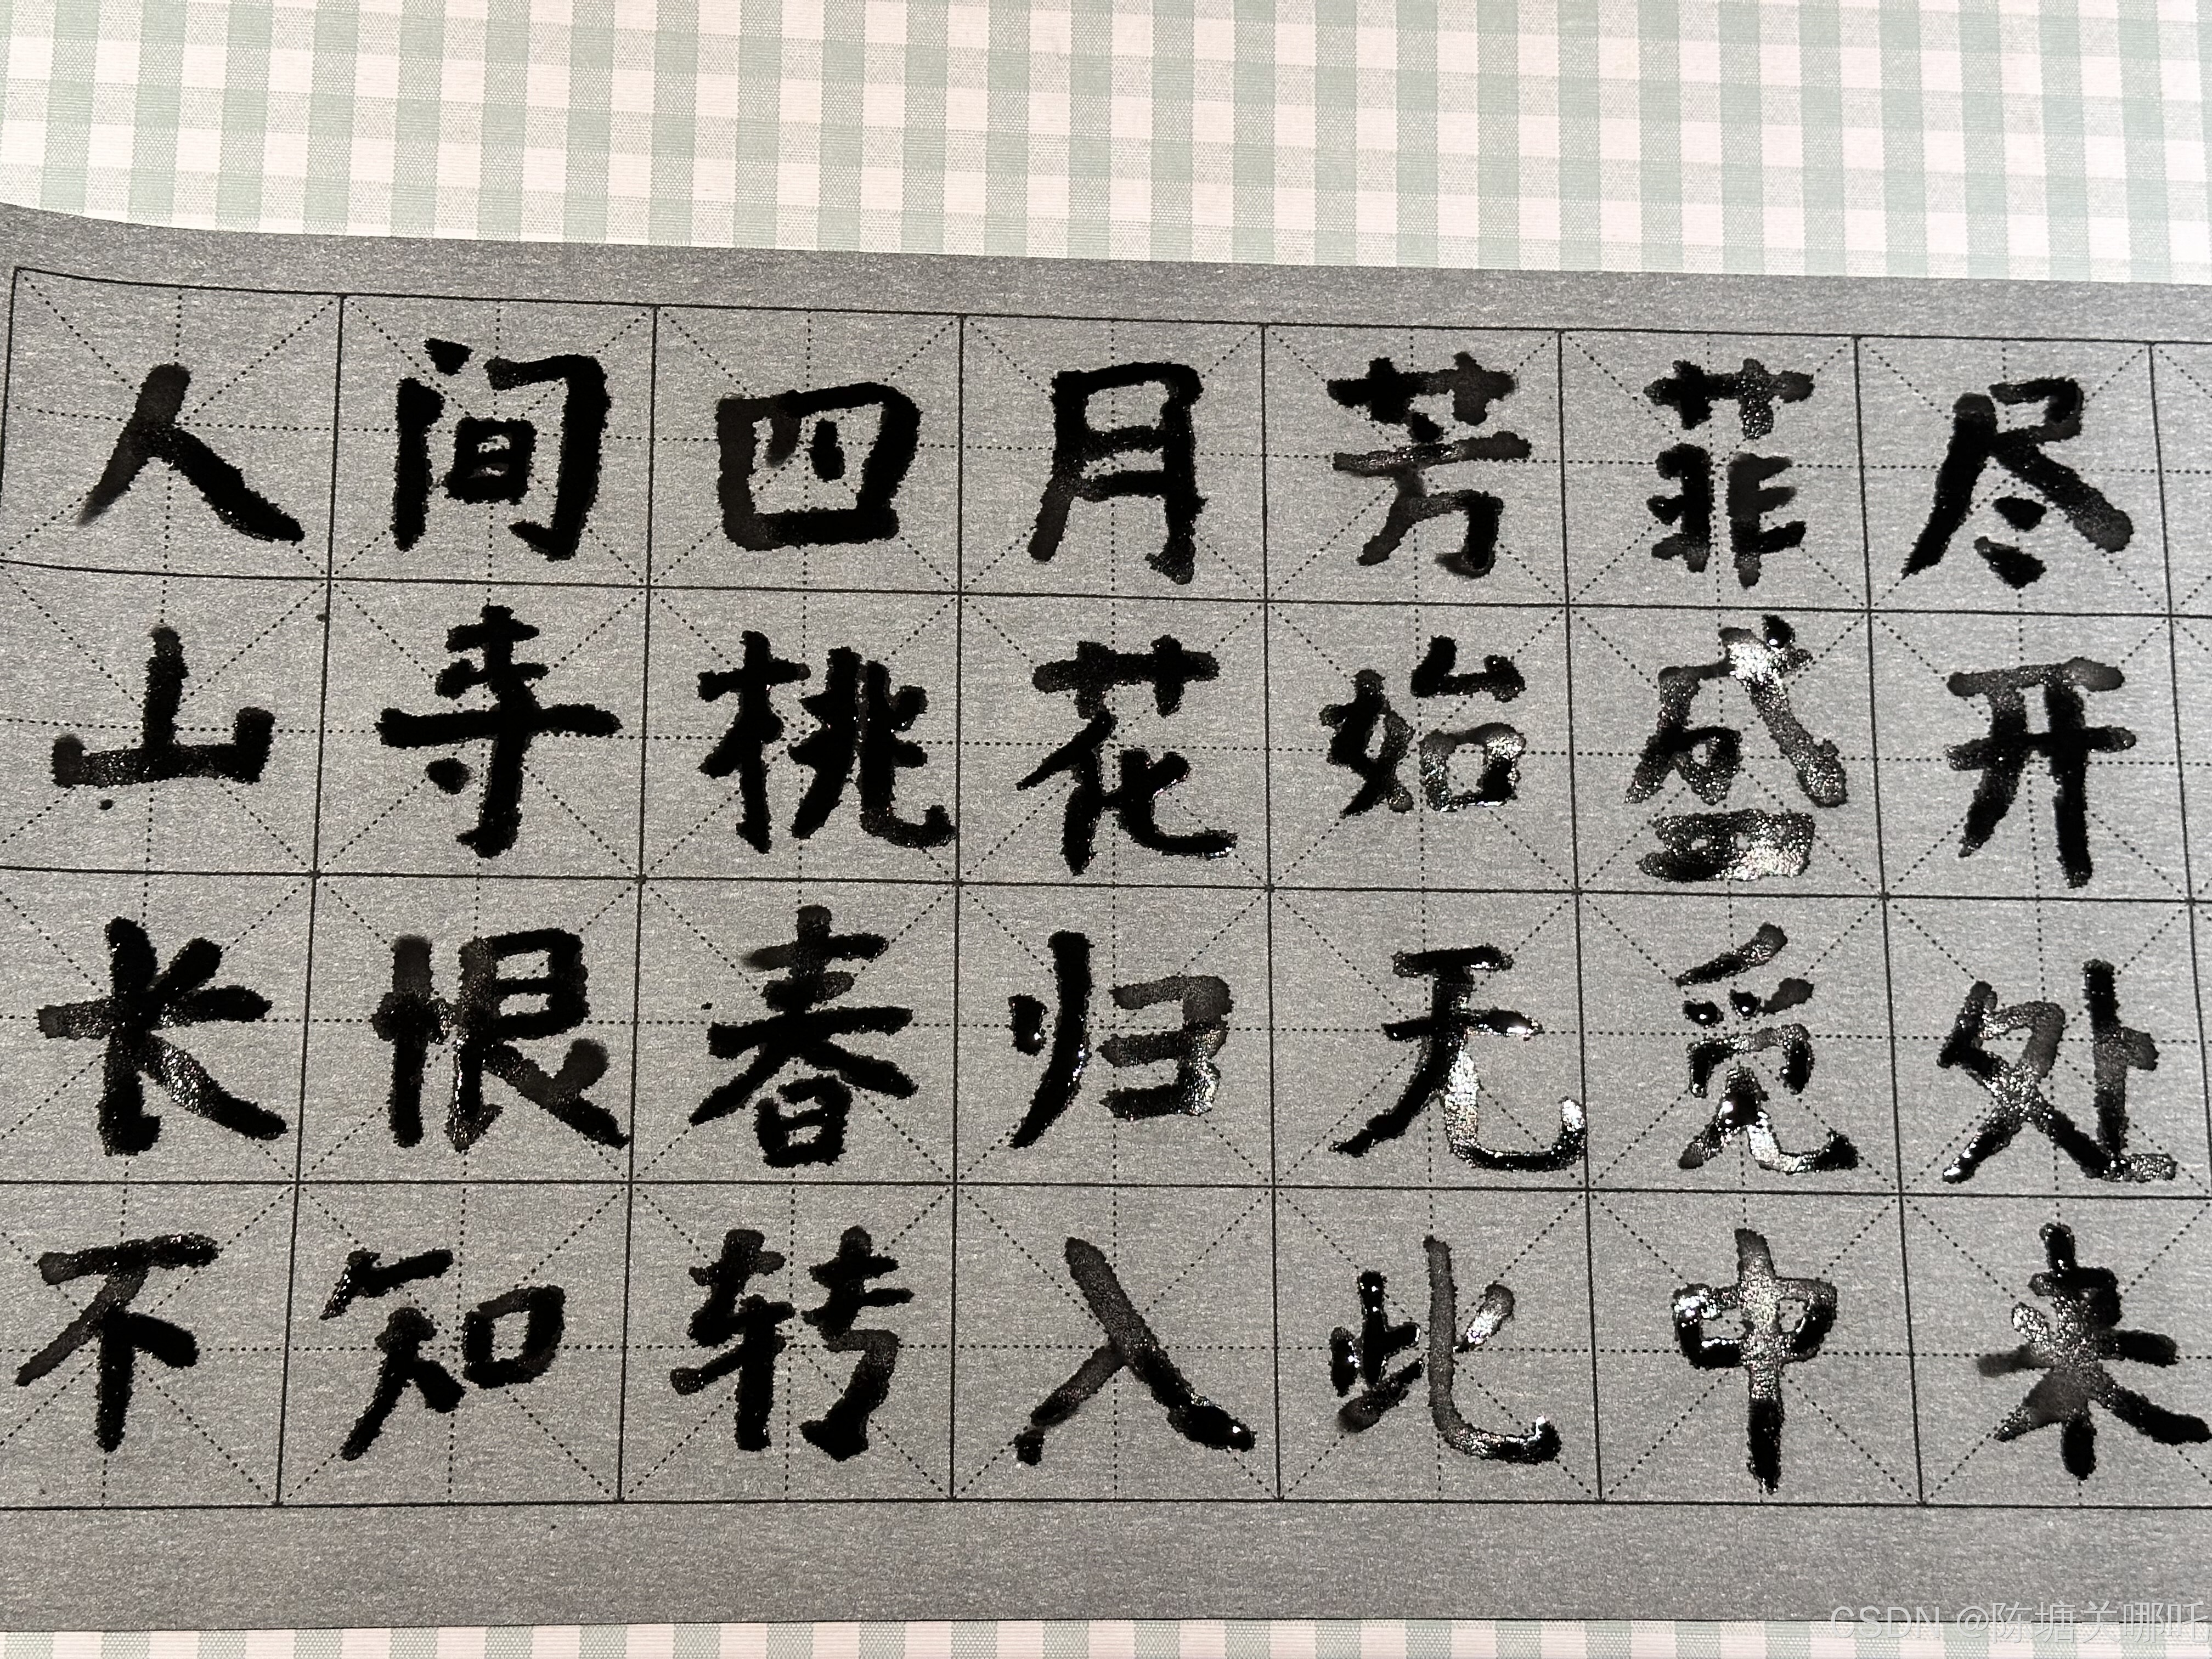 人间四月芳菲尽
山寺桃花始盛开
长恨春归无觅处
不知转入此中来
CSDN @陈塘关哪吒